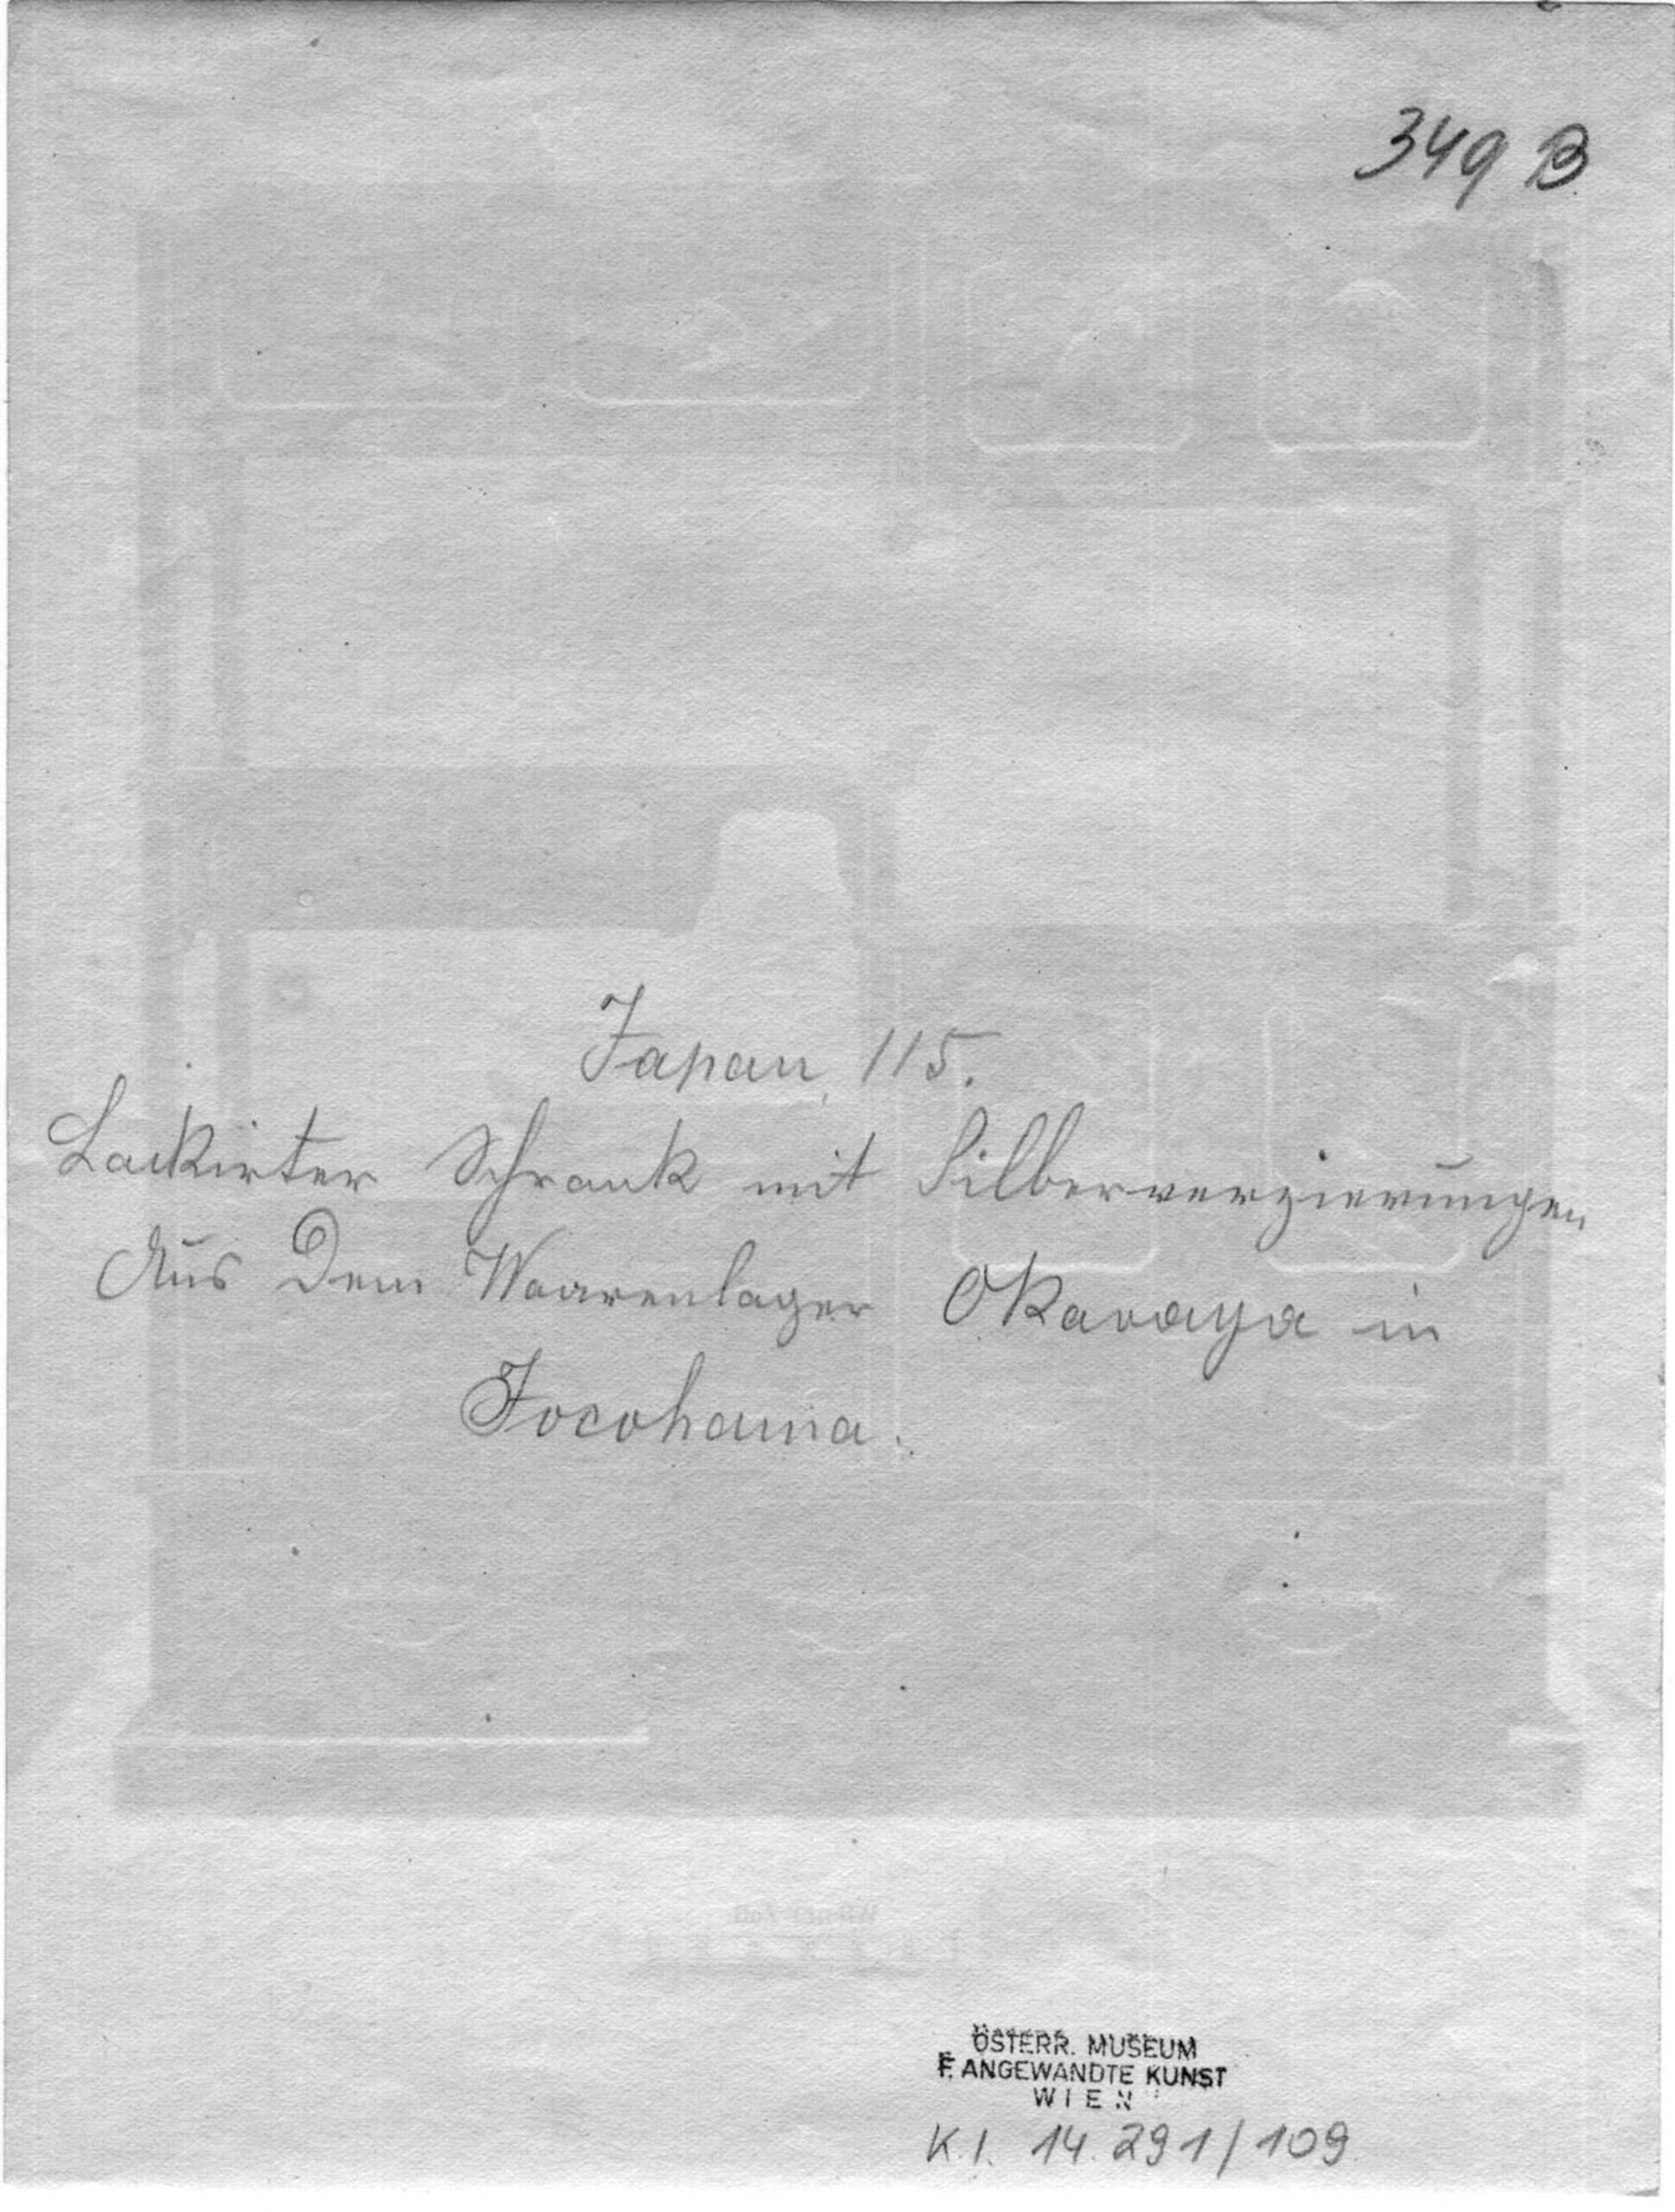 349 B
Japan, 115.
Lackirter Schrank mit Silberverzierungen
Aus dem Waarenlager Okavaya in
Jocohama.
ÖSTERR. MUSEUM
F. ANGEWANDTE KUNST
WIEN
K.I. 14.291/109